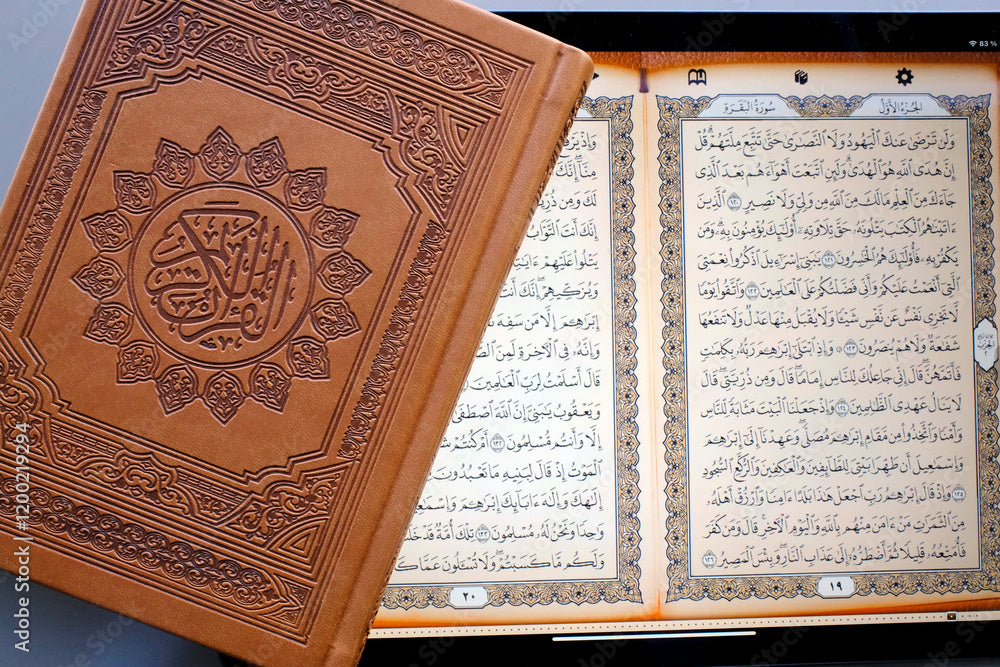 83 %
الجُزْءُ الأَوَّلُ
سُورَةُ البَقَرَةِ
وَلَن تَرْضَىٰ عَنكَ ٱلْيَهُودُ وَلَا ٱلنَّصَٰرَىٰ حَتَّىٰ تَتَّبِعَ مِلَّتَهُمْ قُلْ
إِنَّ هُدَى ٱللَّهِ هُوَ ٱلْهُدَىٰ وَلَئِنِ ٱتَّبَعْتَ أَهْوَآءَهُم بَعْدَ ٱلَّذِى
جَآءَكَ مِنَ ٱلْعِلْمِ مَا لَكَ مِنَ ٱللَّهِ مِن وَلِىٍّ وَلَا نَصِيرٍ ١٢٠ ٱلَّذِينَ
ءَاتَيْنَٰهُمُ ٱلْكِتَٰبَ يَتْلُونَهُۥ حَقَّ تِلَاوَتِهِۦٓ أُو۟لَٰٓئِكَ يُؤْمِنُونَ بِهِۦ وَمَن
يَكْفُرْ بِهِۦ فَأُو۟لَٰٓئِكَ هُمُ ٱلْخَٰسِرُونَ ١٢١ يَٰبَنِىٓ إِسْرَٰٓءِيلَ ٱذْكُرُوا۟ نِعْمَتِىَ
ٱلَّتِىٓ أَنْعَمْتُ عَلَيْكُمْ وَأَنِّى فَضَّلْتُكُمْ عَلَى ٱلْعَٰلَمِينَ ١٢٢ وَٱتَّقُوا۟ يَوْمًا
لَّا تَجْزِى نَفْسٌ عَن نَّفْسٍ شَيْـًٔا وَلَا يُقْبَلُ مِنْهَا عَدْلٌ وَلَا تَنفَعُهَا
شَفَٰعَةٌ وَلَا هُمْ يُنصَرُونَ ١٢٣ وَإِذِ ٱبْتَلَىٰٓ إِبْرَٰهِـۧمَ رَبُّهُۥ بِكَلِمَٰتٍ
فَأَتَمَّهُنَّ قَالَ إِنِّى جَاعِلُكَ لِلنَّاسِ إِمَامًا قَالَ وَمِن ذُرِّيَّتِى قَالَ
لَا يَنَالُ عَهْدِى ٱلظَّٰلِمِينَ ١٢٤ وَإِذْ جَعَلْنَا ٱلْبَيْتَ مَثَابَةً لِّلنَّاسِ
وَأَمْنًا وَٱتَّخِذُوا۟ مِن مَّقَامِ إِبْرَٰهِـۧمَ مُصَلًّى وَعَهِدْنَآ إِلَىٰٓ إِبْرَٰهِـۧمَ
وَإِسْمَٰعِيلَ أَن طَهِّرَا بَيْتِىَ لِلطَّآئِفِينَ وَٱلْعَٰكِفِينَ وَٱلرُّكَّعِ ٱلسُّجُودِ
١٢٥ وَإِذْ قَالَ إِبْرَٰهِـۧمُ رَبِّ ٱجْعَلْ هَٰذَا بَلَدًا ءَامِنًا وَٱرْزُقْ أَهْلَهُۥ
مِنَ ٱلثَّمَرَٰتِ مَنْ ءَامَنَ مِنْهُم بِٱللَّهِ وَٱلْيَوْمِ ٱلْءَاخِرِ قَالَ وَمَن كَفَرَ
فَأُمَتِّعُهُۥ قَلِيلًا ثُمَّ أَضْطَرُّهُۥٓ إِلَىٰ عَذَابِ ٱلنَّارِ وَبِئْسَ ٱلْمَصِيرُ ١٢٦
١٩
مِنَّآ إِنَّكَ
لَكَ وَمِن ذُرِّيَّ
إِنَّكَ أَنتَ ٱلتَّوَّابُ
يَتْلُوا۟ عَلَيْهِمْ
وَيُزَكِّيهِمْ إِنَّكَ أَنتَ
إِبْرَٰهِـۧمَ إِلَّا مَن سَفِهَ
وَإِنَّهُۥ فِى ٱلْءَاخِرَةِ لَمِنَ
قَالَ أَسْلَمْتُ لِرَبِّ ٱلْعَٰلَمِينَ
وَيَعْقُوبُ يَٰبَنِىَّ إِنَّ ٱللَّهَ ٱصْطَفَىٰ
إِلَّا وَأَنتُم مُّسْلِمُونَ ١٣٢ أَمْ كُنتُمْ
ٱلْمَوْتُ إِذْ قَالَ لِبَنِيهِ مَا تَعْبُدُونَ
إِلَٰهَكَ وَإِلَٰهَ ءَابَآئِكَ إِبْرَٰهِـۧمَ وَإِسْمَٰ
وَٰحِدًا وَنَحْنُ لَهُۥ مُسْلِمُونَ ١٣٣ تِلْكَ أُمَّةٌ قَدْ خَلَ
وَلَكُم مَّا كَسَبْتُمْ وَلَا تُسْـَٔلُونَ عَمَّا كَا
٢٠
القرآن الكريم
Adobe Stock | #1200219294